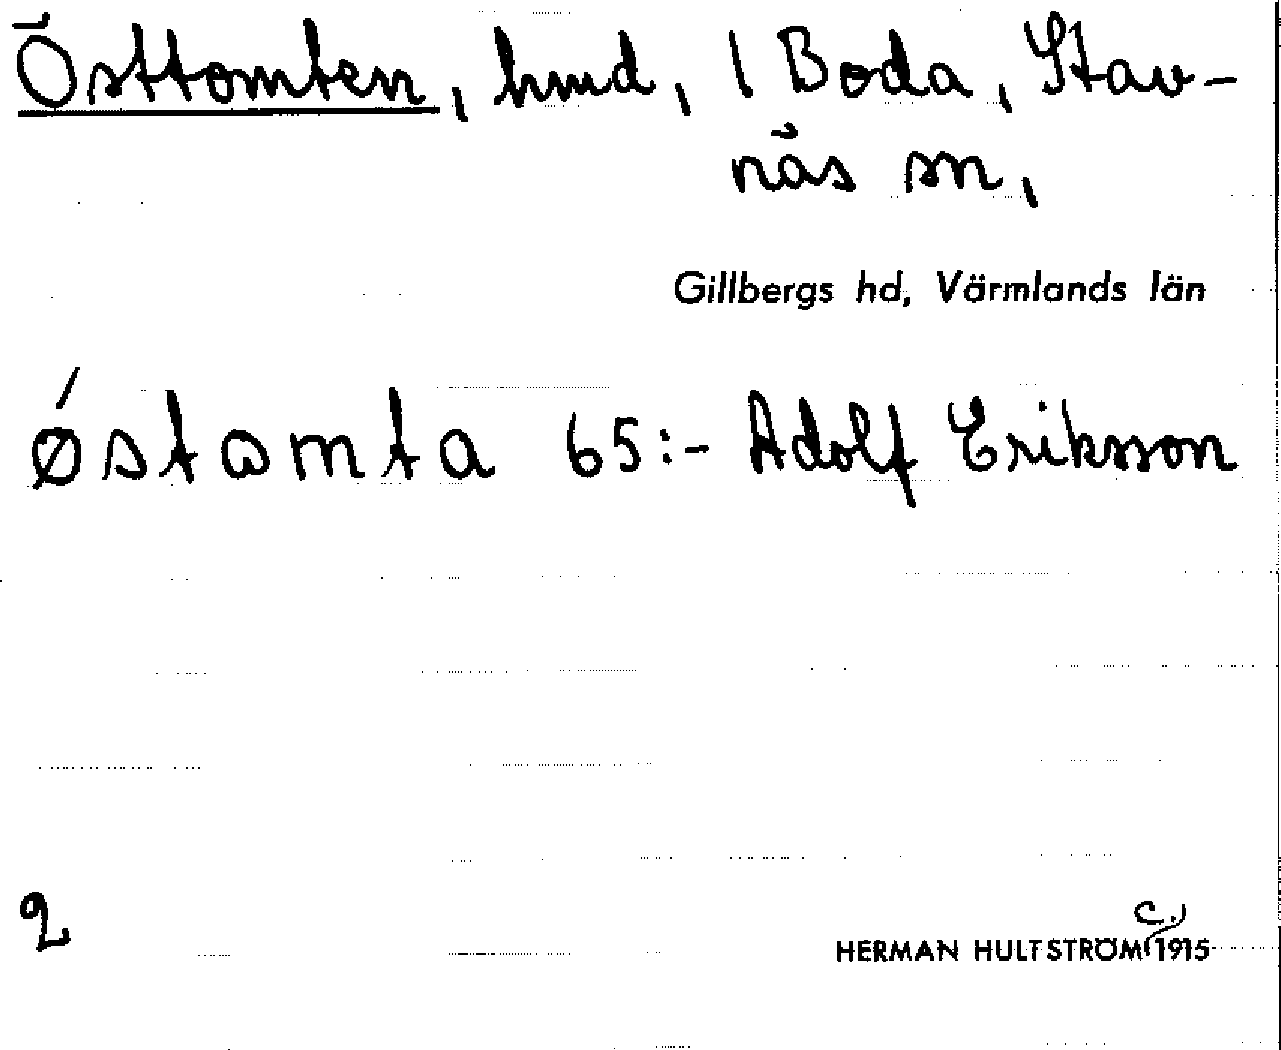 Östtomten, hmd, 1 Boda, Stav-
näs sn,
Gillbergs hd, Värmlands län
ǿstamta 65:- Adolf Erikson
2
HERMAN HULTSTRÖM (c.) 1915